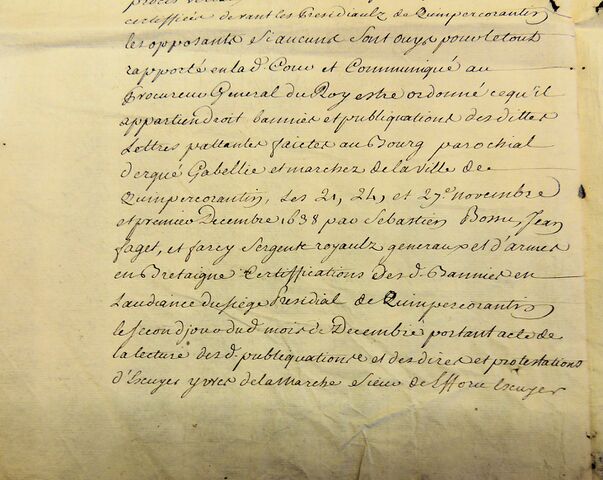 certifficés devant les Presidiaulx de Quimpercorantin
les opposants si aucuns sont ouys pour le tout
rapporté en lad. Cour et Communiqué au
Procureur General du Roy estre ordonné ce qu'il
appartiendroit bannies et publiquations des dittes
Lettres pattantes faictes au Bourg parochial
d'ergué Gabellic et marchez de la ville de
Quimpercorantin, Les 21, 24, et 27.e novembre
et premier Decembre 1638 par Sebastien Bossu, Jean
faget, et farcy Sergents royaulx generaux et d'armes
en Bretaigne Certiffications des d. Bannies en
Laudiance du siège Presidial de Quimpercorantin
le second jour dud. mois de Decembre portant acte de
la lecture des d. publiquations et des dires et protestations
d'Escuyer yves de la marche sieur de Escuyer